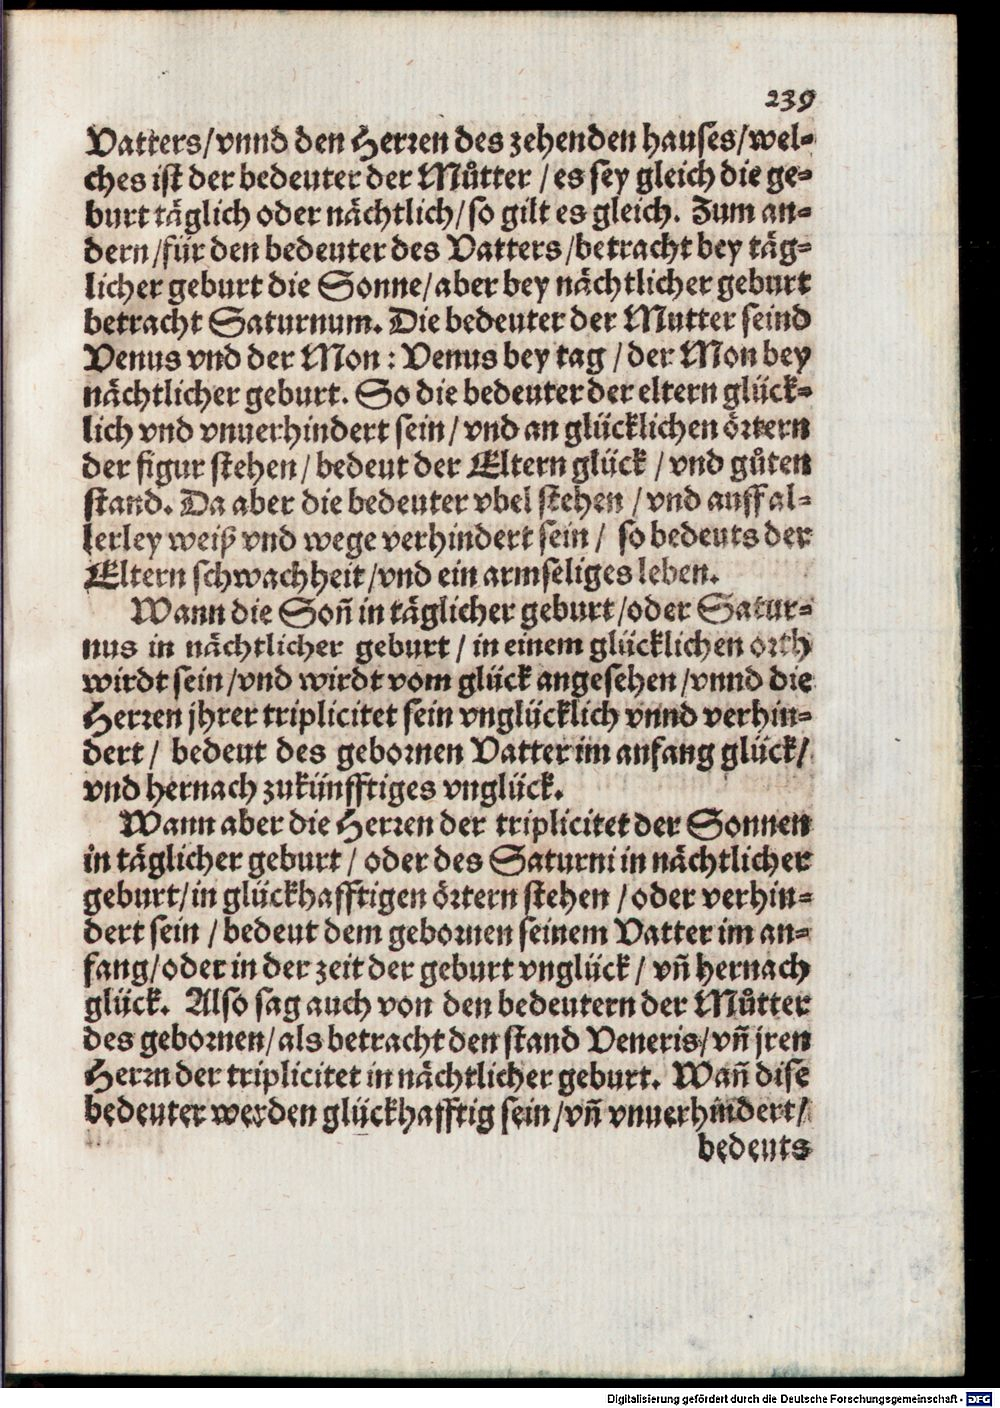 239
Vatters/vnnd den Herren des zehenden hauses/wel-
ches ist der bedeuter der Můtter / es sey gleich die ge-
burt täglich oder nächtlich/so gilt es gleich. Zum an-
dern/für den bedeuter des Vatters/betracht bey täg-
licher geburt die Sonne/aber bey nächtlicher geburt
betracht Saturnum. Die bedeuter der Mutter seind
Venus vnd der Mon : Venus bey tag / der Mon bey
nächtlicher geburt. So die bedeuter der eltern glück-
lich vnd vnuerhindert sein/ vnd an glücklichen örtern
der figur stehen/bedeut der Eltern glück / vnd gůten
stand. Da aber die bedeuter vbel stehen / vnd auff al-
lerley weiß vnd wege verhindert sein/ so bedeuts der
Eltern schwachheit/vnd ein armseliges leben.
Wann die Soñ in täglicher geburt/oder Satur-
nus in nächtlicher geburt / in einem glücklichen orth
wirdt sein/vnd wirdt vom glück angesehen/vnnd die
Herren jhrer triplicitet sein vnglücklich vnnd verhin-
dert/ bedeut des gebornen Vatter im anfang glück/
vnd hernach zukünfftiges vnglück.
Wann aber die Herren der triplicitet der Sonnen
in täglicher geburt / oder des Saturni in nächtlicher
geburt/in glückhafftigen örtern stehen / oder verhin-
dert sein / bedeut dem gebornen seinem Vatter im an-
fang/oder in der zeit der geburt vnglück/ vñ hernach
glück. Also sag auch von den bedeutern der Můtter
des gebornen/als betracht den stand Veneris/vñ jren
Herrn der triplicitet in nächtlicher geburt. Wañ dise
bedeuter werden glückhafftig sein/vñ vnuerhindert/
bedeuts
Digitalisierung gefördert durch die Deutsche Forschungsgemeinschaft - DFG